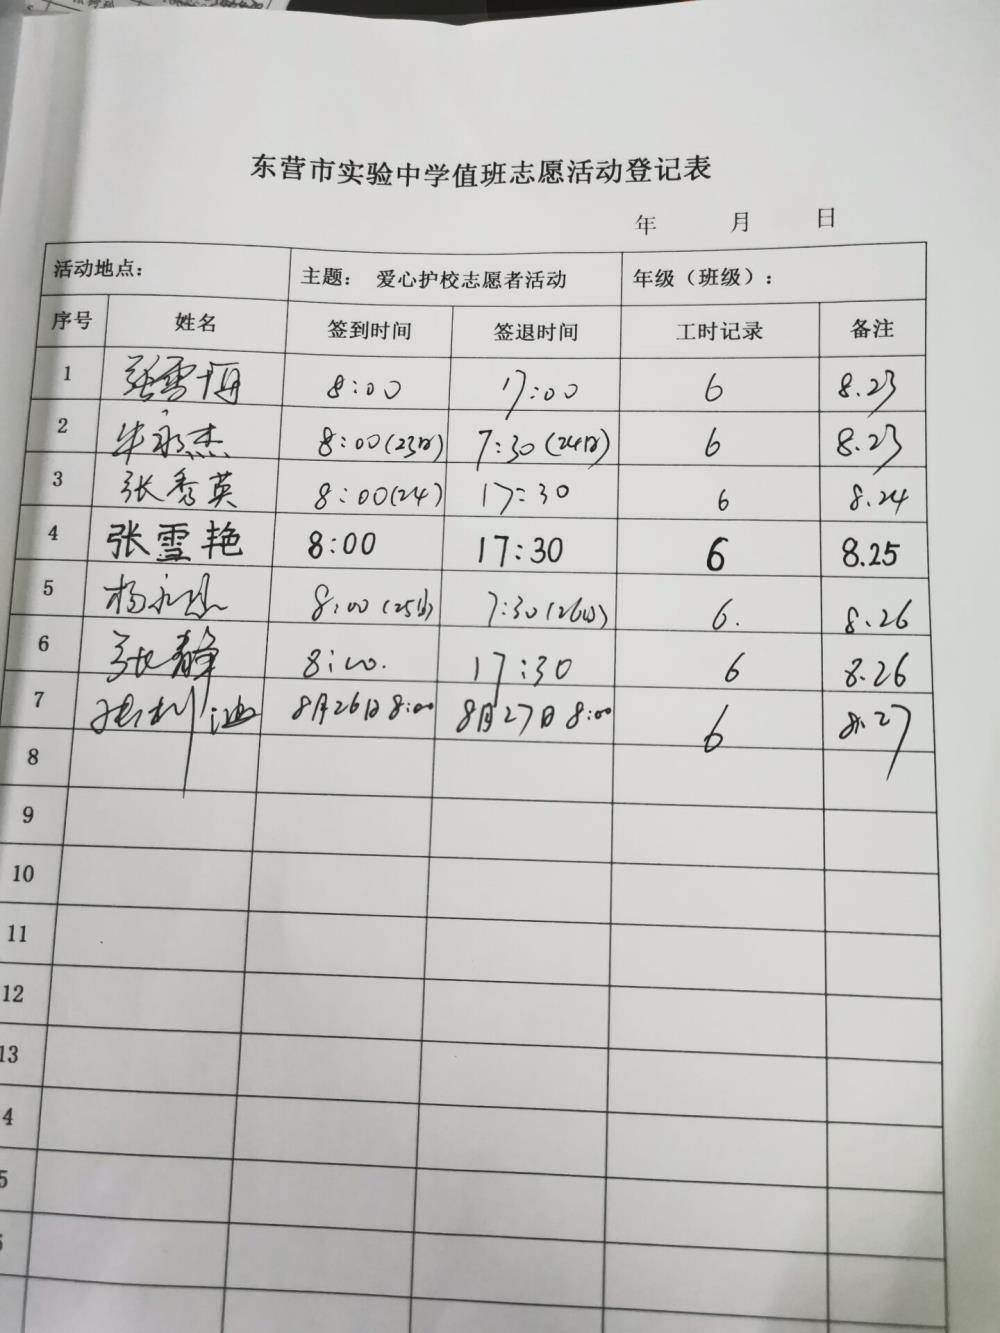 东营市实验中学值班志愿活动登记表
年 月 日
活动地点: 主题: 爱心护校志愿者活动 年级(班级):
序号 姓名 签到时间 签退时间 工时记录 备注
1 张雪 8:00 17:00 6 8.23
2 牛永杰 8:00(23日) 7:30(24日) 6 8.23
3 张秀英 8:00(24) 17:30 6 8.24
4 张雪艳 8:00 17:30 6 8.25
5 杨永 8:00(25日) 7:30(26日) 6. 8.26
6 张静 8:00. 17:30 6 8.26
7 8月26日 8:00 8月27日 8:00 6 8.27
8
9
10
11
12
13
4
5